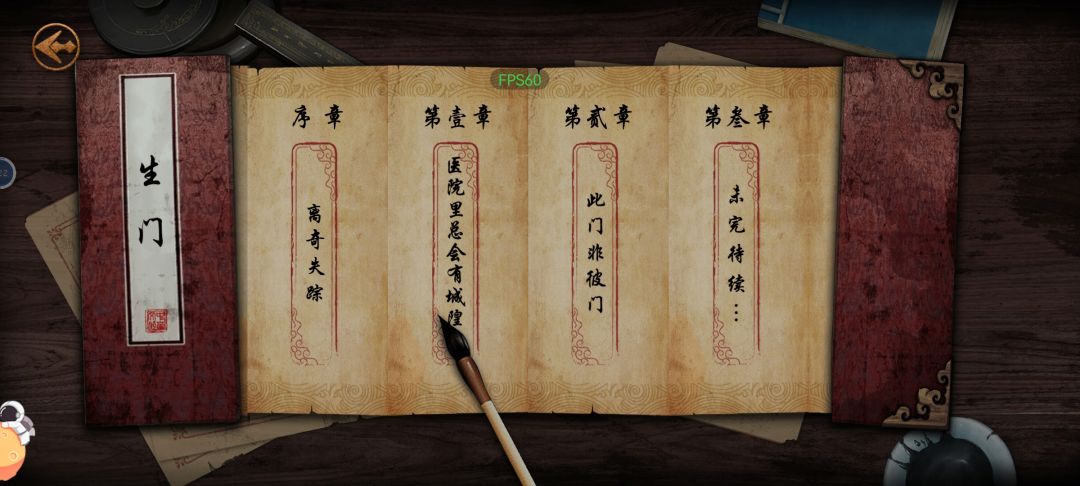 生门
FPS60
序章
离奇失踪
第壹章
医院里总会有城隍
第贰章
此门非彼门
第叁章
未完待续...
22